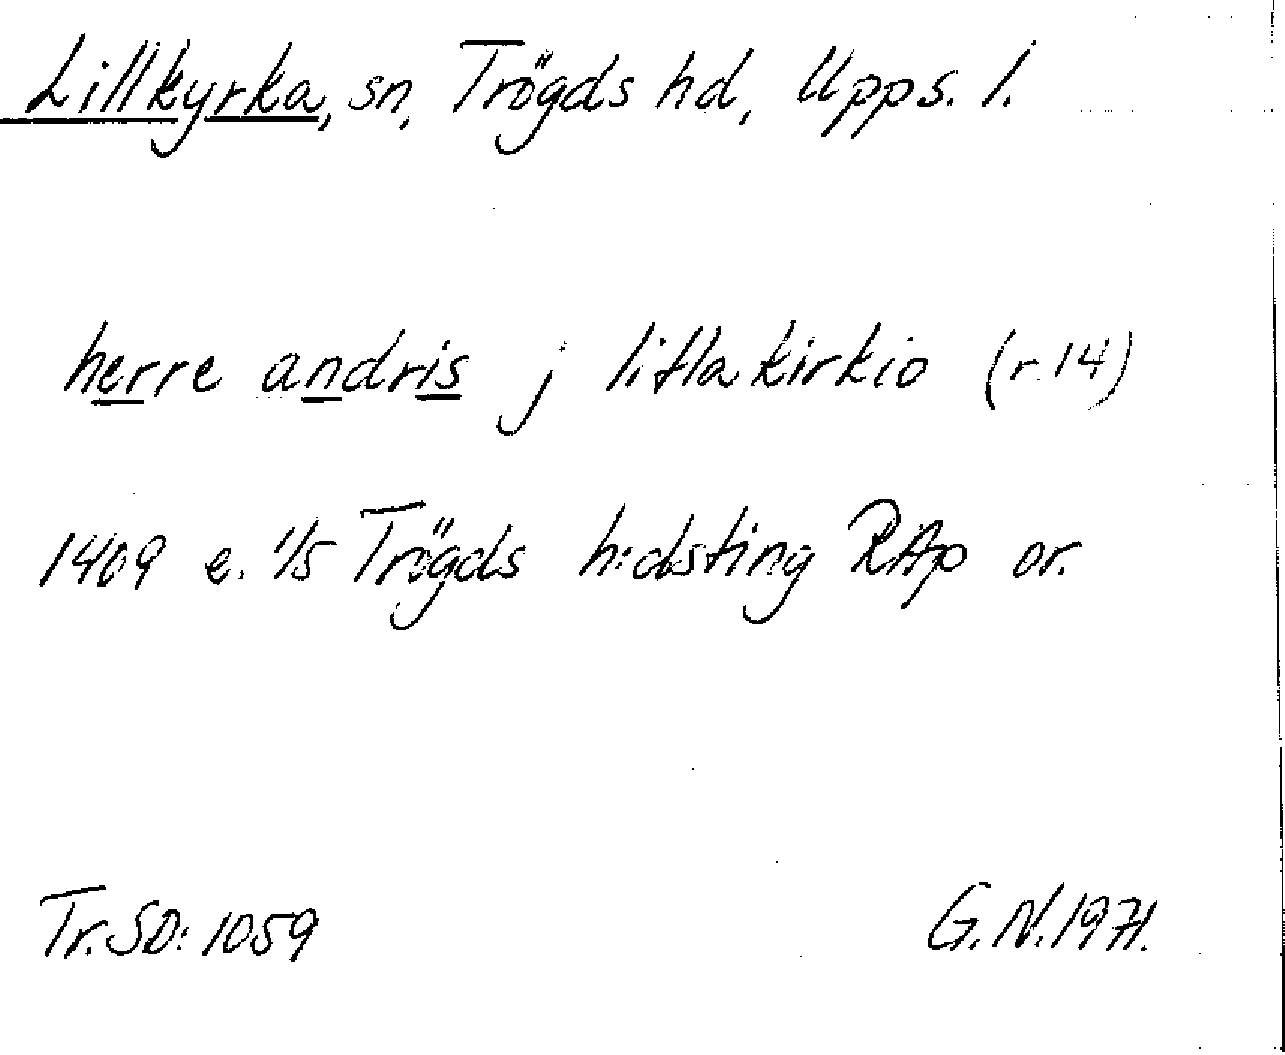 Lillkyrka, sn, Trögds hd, Upps. l.
herre andris j litlakirkio (r. 14)
1409 e. 1/5 Trögds h:dsting RAp or.
Tr. SD: 1059
G. N. 1971.